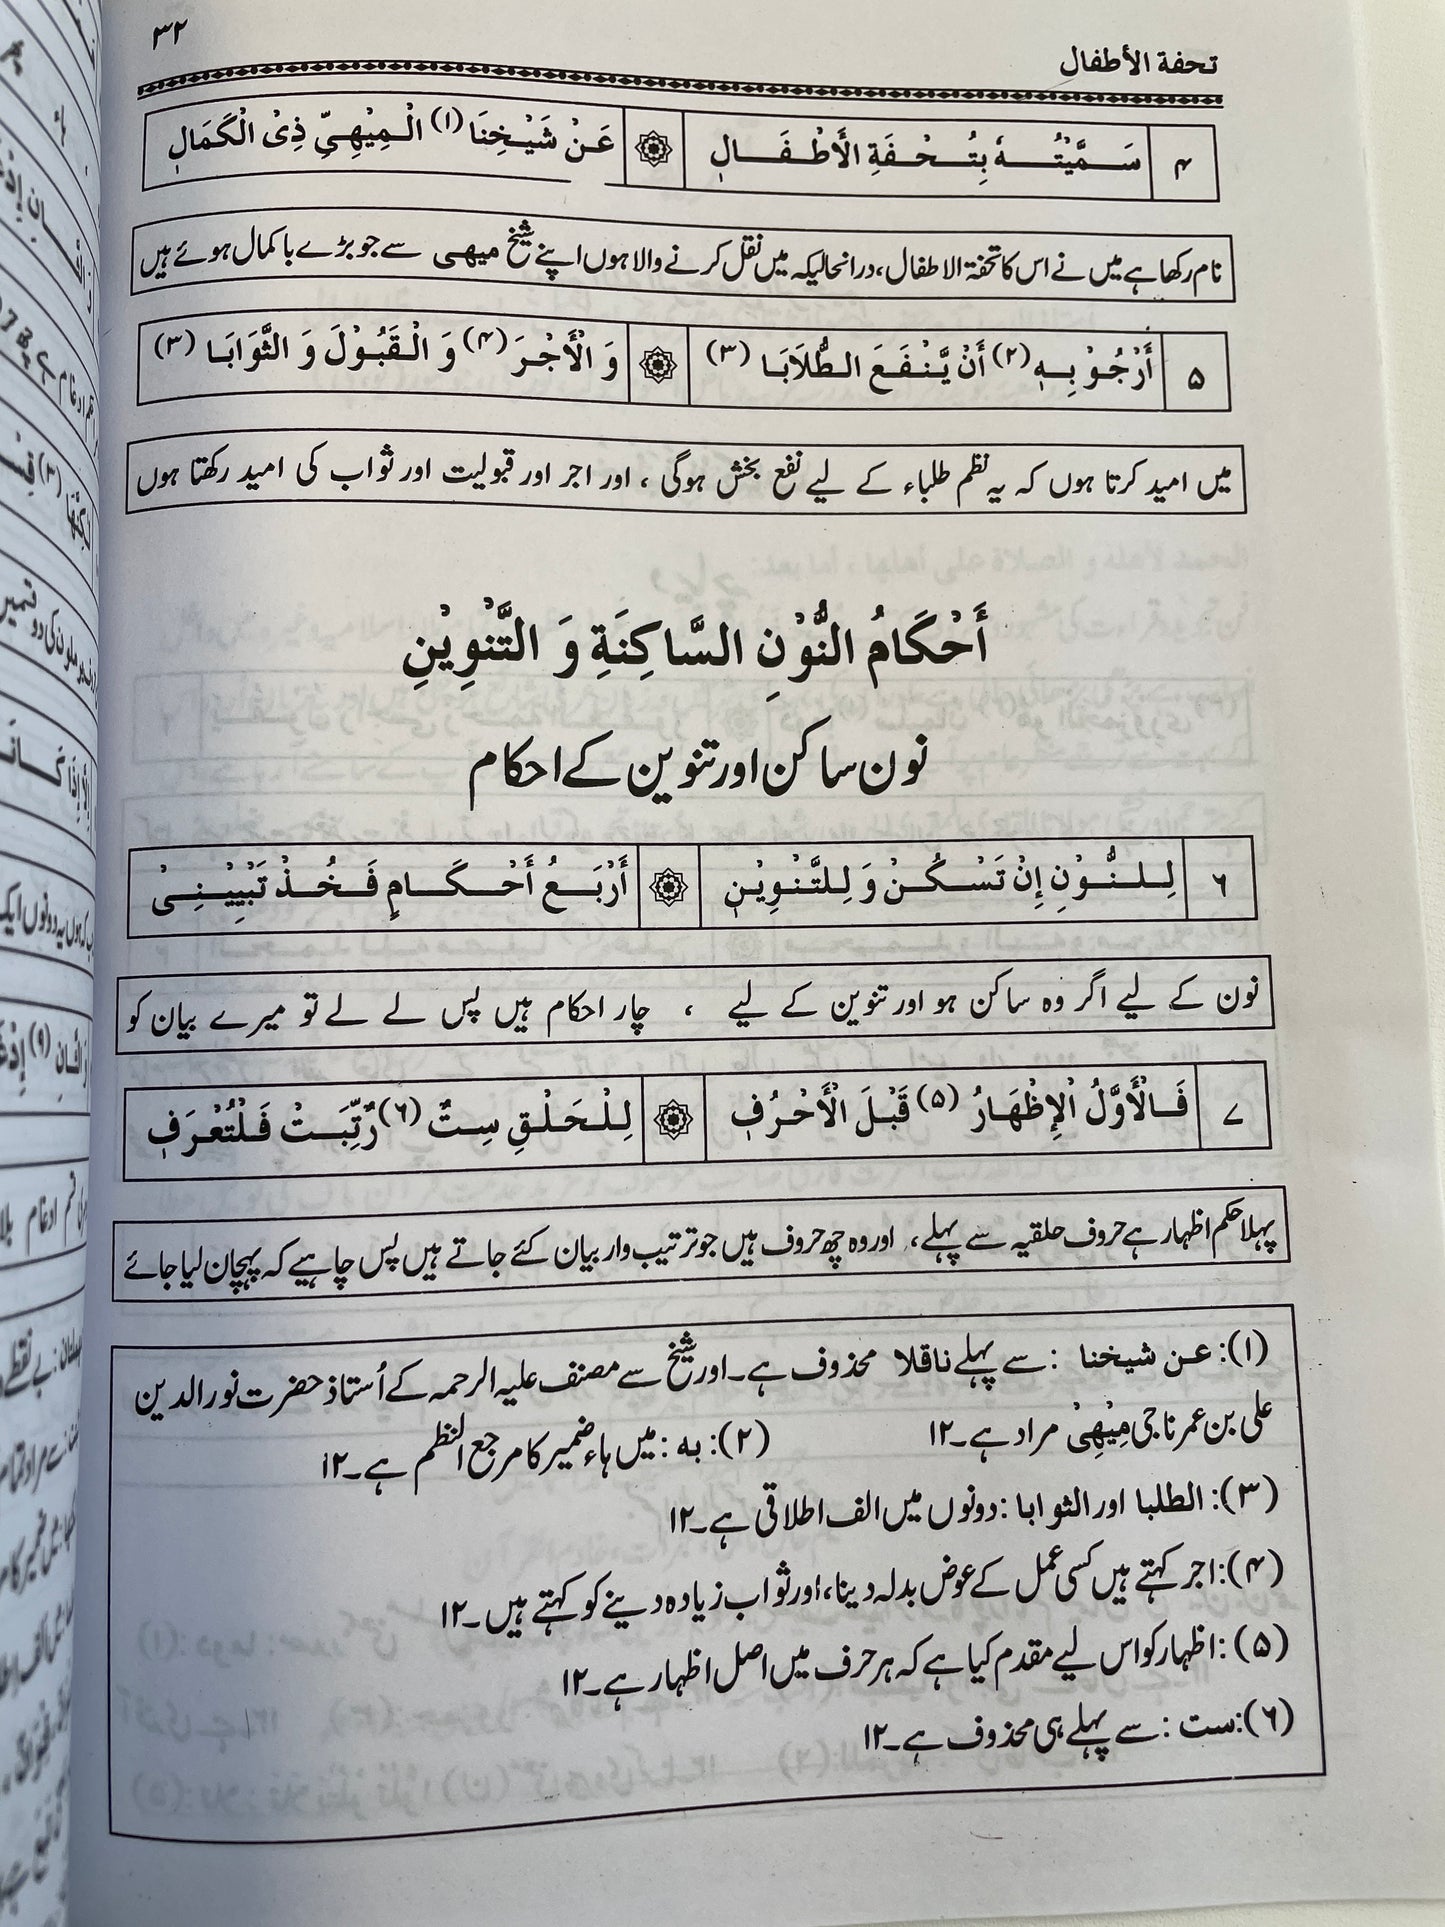 تحفة الأطفال ۳۲
۴ سَـــمَّيْتُـــــهُ بِتُـــحْــفَةِ الْأَطْــفَـــــالِ عَـنْ شَيْـخِنَا (۱) الْـمِيْهِـيِّ ذِىْ الْكَمَالِ
نام رکھا ہے میں نے اس کا تحفۃ الاطفال، درانحالیکہ میں نقل کرنے والا ہوں اپنے شیخ میھی سے جو بڑے باکمال ہوئے ہیں
۵ أَرْجُـوْ بِـــهٖ (۲) أَنْ يَّـنْـفَـعَ الـطُّلَابَـا (۳) وَ الْأَجْـرَ (۴) وَ الْـقَبُـوْلَ وَ الثَّوَابَـا (۳)
میں امید کرتا ہوں کہ یہ نظم طلباء کے لیے نفع بخش ہوگی ، اور اجر اور قبولیت اور ثواب کی امید رکھتا ہوں
أَحْكَامُ النُّوْنِ السَّاكِنَةِ وَ التَّنْوِيْنِ
نون ساکن اور تنوین کے احکام
۶ لِـلــنُّـــوْنِ إِنْ تَـسْــكُــنْ وَ لِـلتَّـنْـوِيْـنِ أَرْبَـــعُ أَحْـــكَــــامٍ فَــخُــذْ تَـبْيِيْـنِــىْ
نون کے لیے اگر وہ ساکن ہو اور تنوین کے لیے ، چار احکام ہیں پس لے لے تو میرے بیان کو
۷ فَــالْأَوَّلُ الْإِظْـهَـارُ (۵) قَبْـلَ الْأَحْـرُفِ لِـلْـحَـلْـقِ سِــتٌ (۶) رُتِّبَــتْ فَـلْتُعْـرَفِ
پہلا حکم اظہار ہے حروف حلقیہ سے پہلے، اور وہ چھ حروف ہیں جو ترتیب وار بیان کئے جاتے ہیں پس چاہیے کہ پہچان لیا جائے
(۱): عن شیخنا : سے پہلے ناقلا محذوف ہے۔ اور شیخ سے مصنف علیہ الرحمہ کے اُستاذ حضرت نور الدین
علی بن عمر ناجی مِیْھِیْ مراد ہے۔۱۲ (۲): به : میں ہاء ضمیر کا مرجع النظم ہے۔۱۲
(۳): الطلبا اور الثوابا : دونوں میں الف اطلاقی ہے۔۱۲
(۴): اجر کہتے ہیں کسی عمل کے عوض بدلہ دینا، اور ثواب زیادہ دینے کو کہتے ہیں۔۱۲
(۵): اظہار کو اس لیے مقدم کیا ہے کہ ہر حرف میں اصل اظہار ہے۔۱۲
(۶): ست : سے پہلے ہی محذوف ہے۔۱۲